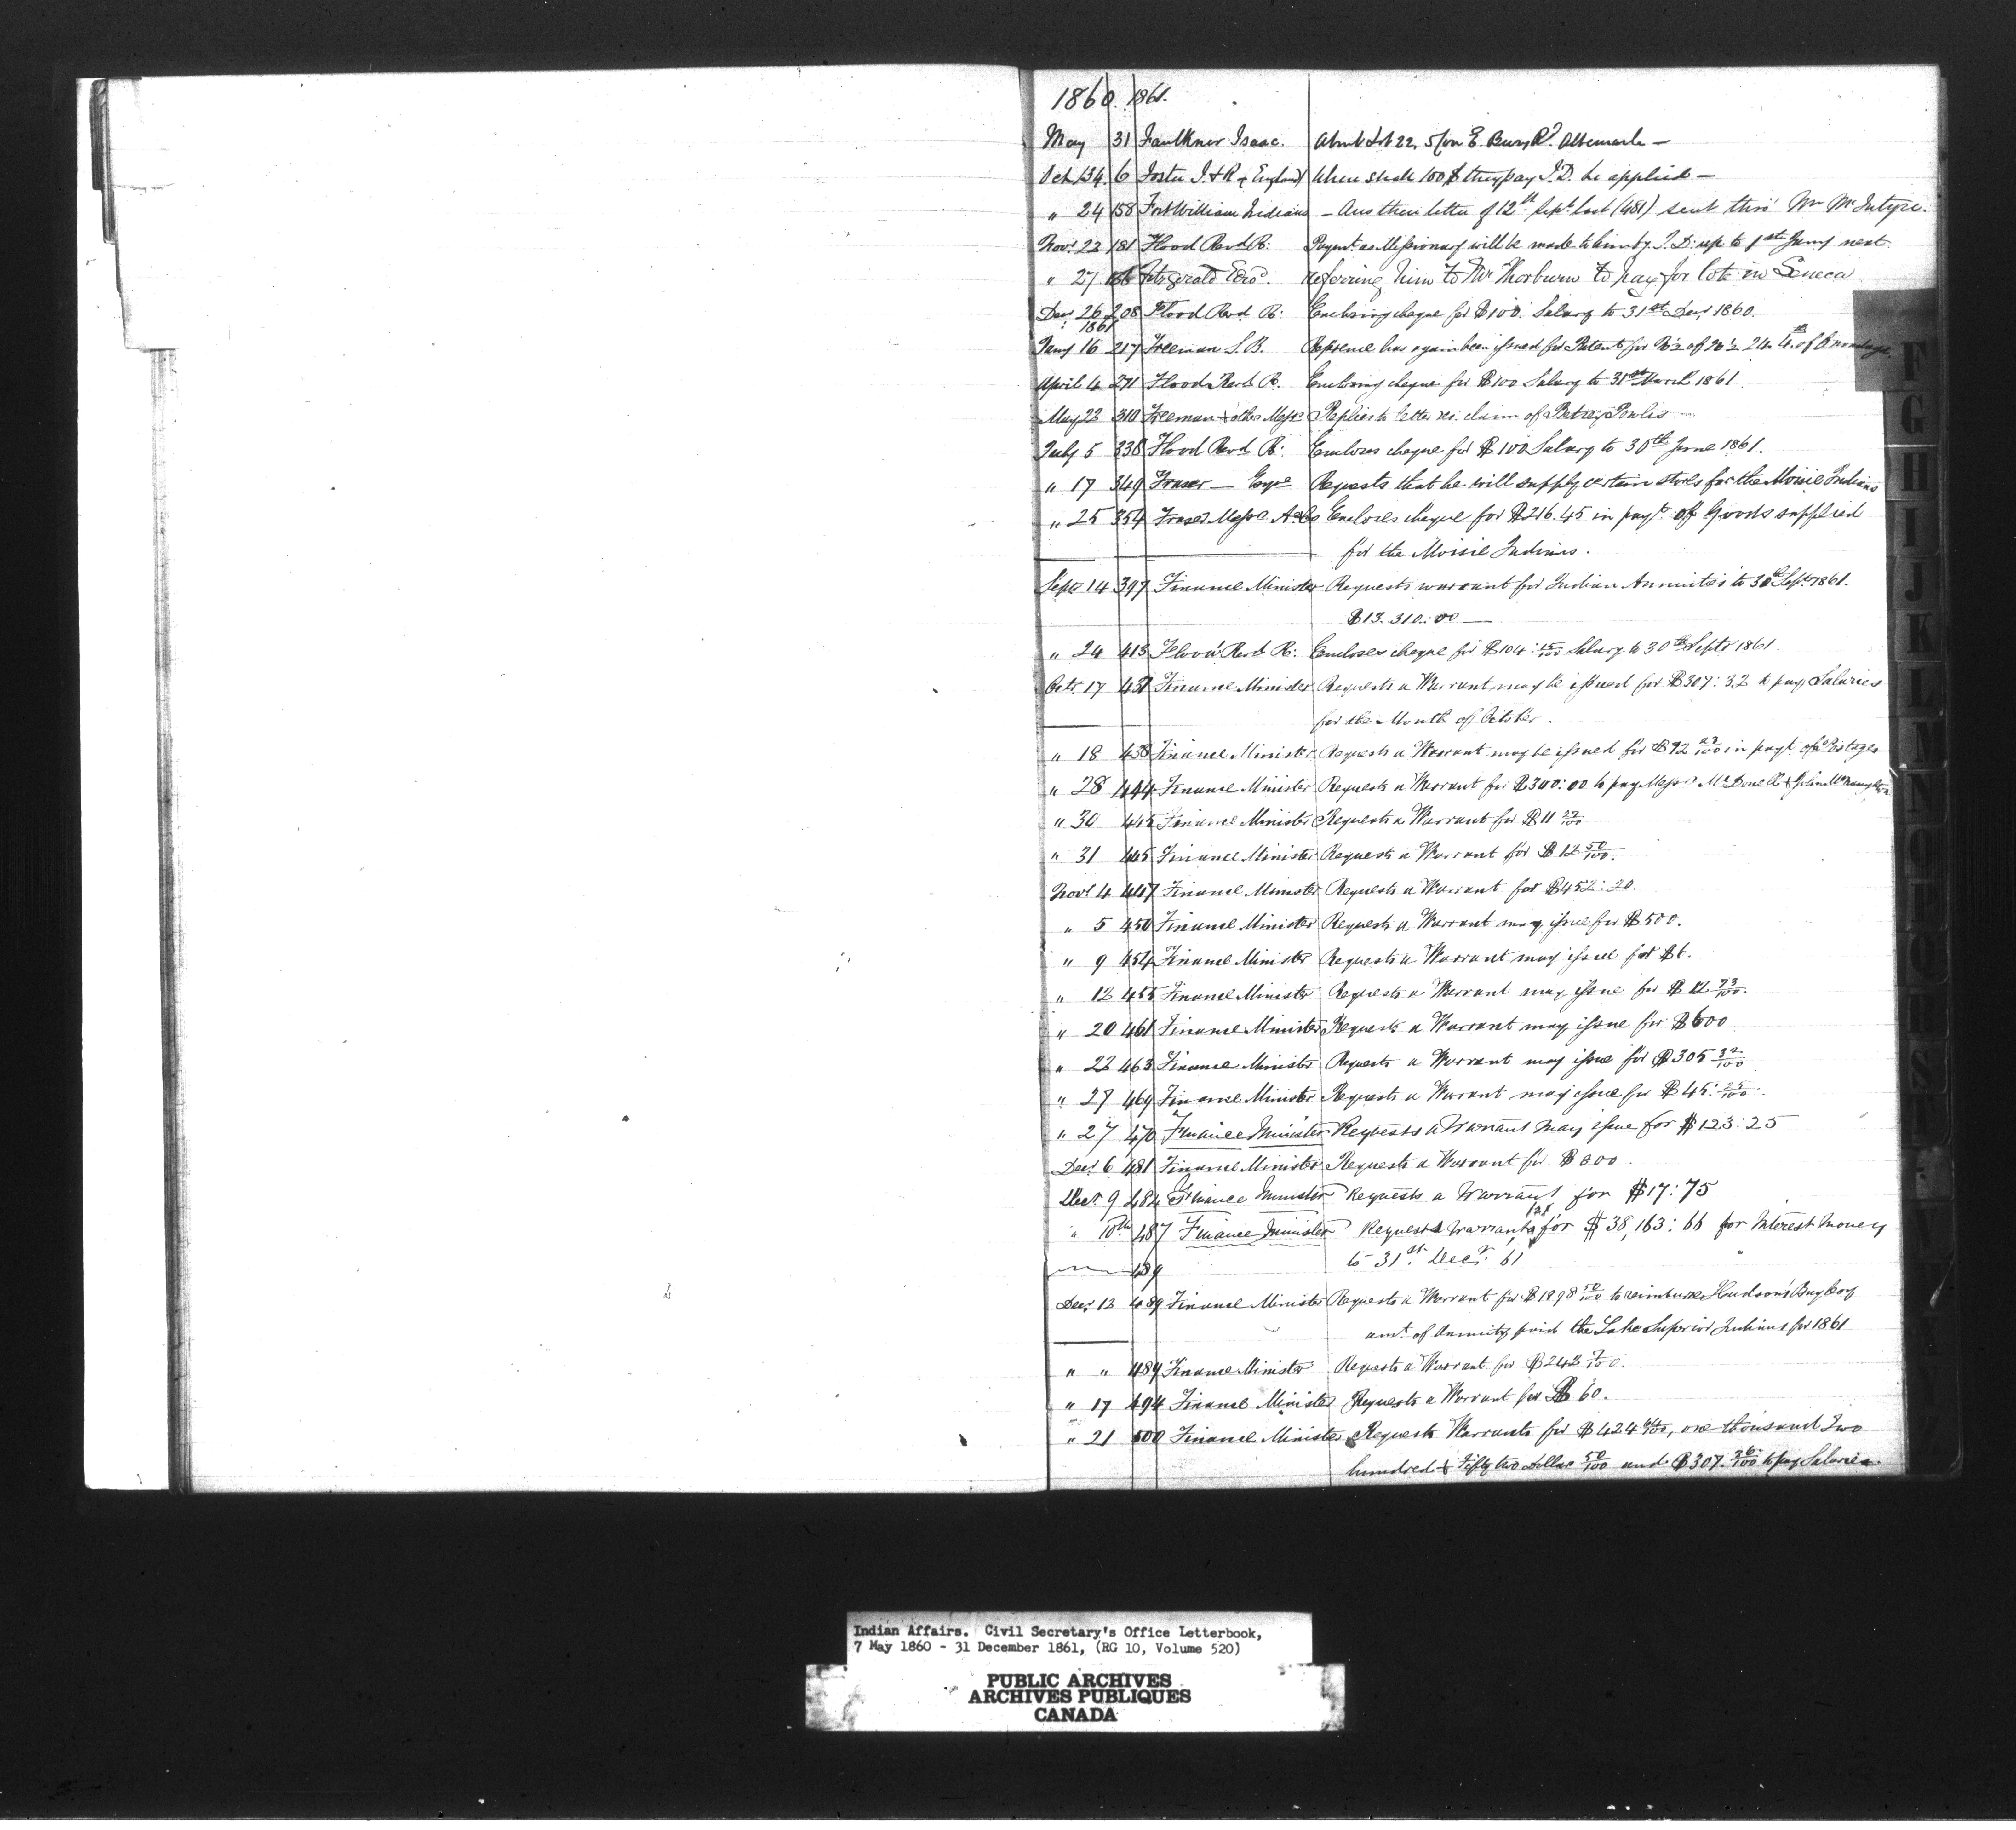 1860. 1861.
May 31 Faulkner Isaac. About Lot 22, 5/con E. Bury Rd. Albemarle —
Oct 134. 6 Foster J. & R (England) Where shall 100 $ they pay I.D. be applied —
" 24 158 Fort William Indians — Ans their letter of 12th Sept last (481) sent thro' Mr McIntyre.
Novr 22 181 Flood Revd R: Paymt as Missionary will be made to him by I.D. up to 1st Jany next.
" 27 186 Fitzgerald Edwd. referring him to Mr Thorburn to pay for lots in Seneca
Decr 26 208 Flood Revd R: Enclosing cheque for $100. Salary to 31st Decr 1860.
1861
Jany 16 217 Freeman S. B. Reference has again been issued for Patent for of N½ 24. 4th of Onondaga.
April 4 271 Flood Revd R. Enclosing cheque for $100 Salary to 31st March 1861.
May 22 310 Freeman & other Messrs Replies to letter re: claim of Betsey Powlis —
July 5 338 Flood Revd R: Encloses cheque for $100 Salary to 30th June 1861.
" 17 349 Fraser — Esqre Requests that he will supply certain stores for the Moisie Indians
" 25 354 Fraser Messrs A & Co Encloses cheque for $216.45 in payt. of Goods supplied
for the Moisie Indians.
Septr 14 397 Finance Minister Requests warrant for Indian Annuities to 30th Sept. 1861.
$13.310:00 —
" 24 413 Flood Revd R: Encloses cheque for $104: Salary to 30th Septr 1861.
Octr 17 431 Finance Minister Requests a Warrant may be issued for $307:32 to pay Salaries
for the Month of October.
" 18 438 Finance Minister Requests a Warrant may be issued for $92 in payt. of Postages
" 28 444 Finance Minister Requests a Warrant for $300:00 to pay Messrs
" 30 445 Finance Minister Requests a Warrant for $11
" 31 445 Finance Minister Requests a Warrant for $12 50/100.
Novr 4 447 Finance Minister Requests a Warrant for $452:20.
" 5 450 Finance Minister Requests a Warrant may issue for $500.
" 9 454 Finance Minister Requests a Warrant may issue for $6.
" 12 455 Finance Minister Requests a Warrant may issue for $12 73/100.
" 20 461 Finance Minister Requests a Warrant may issue for $600
" 22 463 Finance Minister Requests a Warrant may issue for $305 32/100
" 27 469 Finance Minister Requests a Warrant may issue for $45: 25/100.
" 27 470 Finance Minister Requests a Warrant may issue for $123:25
Decr. 6 481 Finance Minister Requests a Warrant for $800.
Decr. 9 484 Finance Minister Requests a Warrant for $17:75
" 10th 487 Finance Minister Requests Warrants for $38,163:66 for Interest money
to 31st. Decr. 61
489
Decr. 12 489 Finance Minister Requests a Warrant for $1898 50/100 to reimburse Hudson's Bay Coy
amt. of Annuity paid the Lake Superior Indians for 1861
" " 489 Finance Minister Requests a Warrant for $242
" 17 494 Finance Minister Requests a Warrant for $60.
" 21 500 Finance Minister Requests Warrants for $424 64/100, one thousand Two
hundred & Fifty two Dollars 50/100 and $307. 36/100 to pay Salaries.
F
G
H
I
J
K
L
M
N
O
P
Q
R
S
T
V
W
Indian Affairs. Civil Secretary's Office Letterbook,
7 May 1860 - 31 December 1861, (RG 10, Volume 520)
PUBLIC ARCHIVES
ARCHIVES PUBLIQUES
CANADA